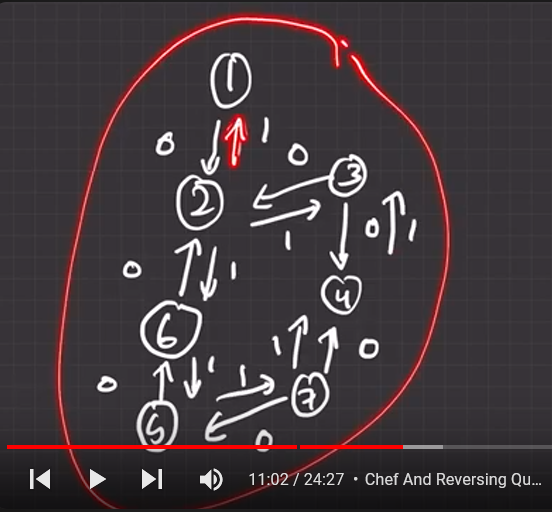 1
0 1
0 3
2
1 0 1
0 1 4
6 1 0
0 1 1 7
5 0
11:02 / 24:27 • Chef And Reversing Qu...